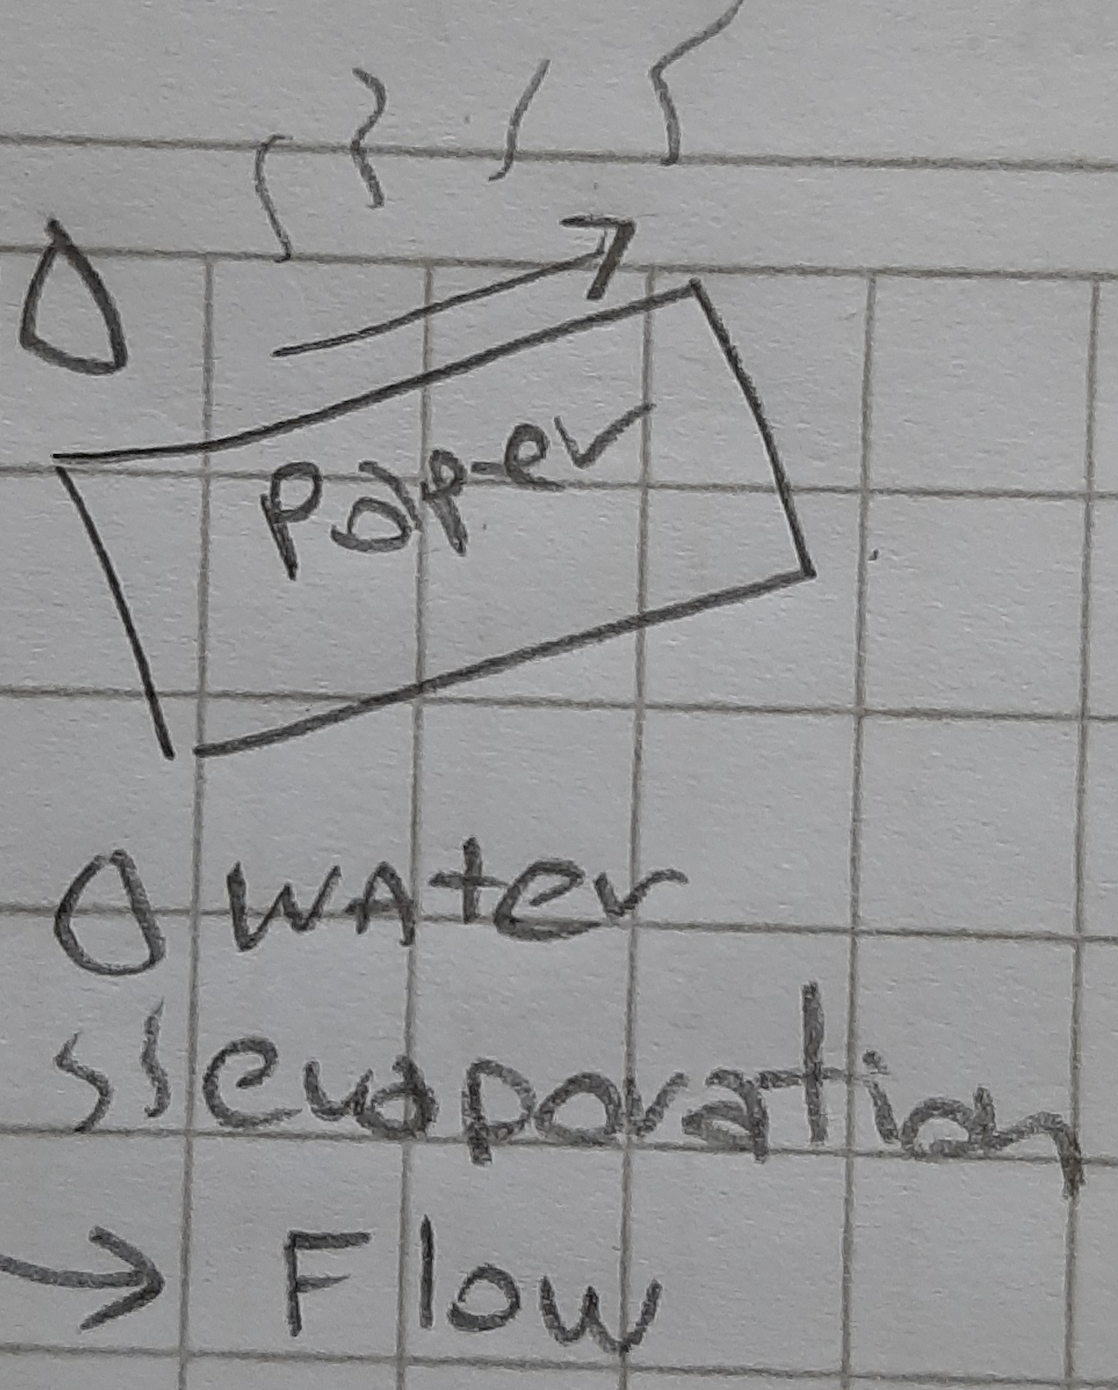 Paper
WAter
evaporation
Flow